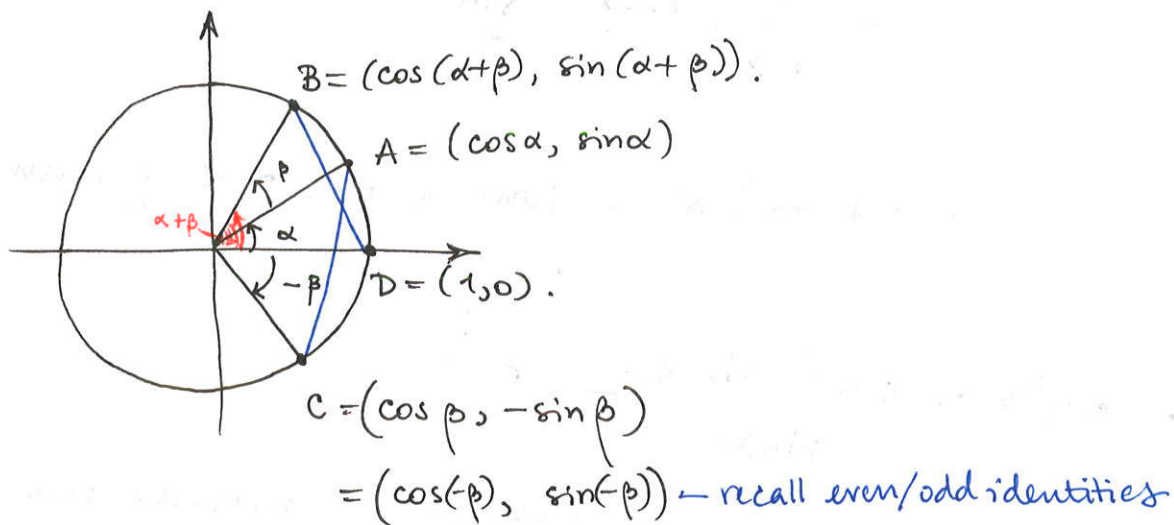 B = (cos (α+β), sin (α + β)).
A = (cosα, sinα)
β
α+β
α
-β
D = (1,0).
C = (cos β, -sin β)
= (cos(-β), sin(-β)) ← recall even/odd identities